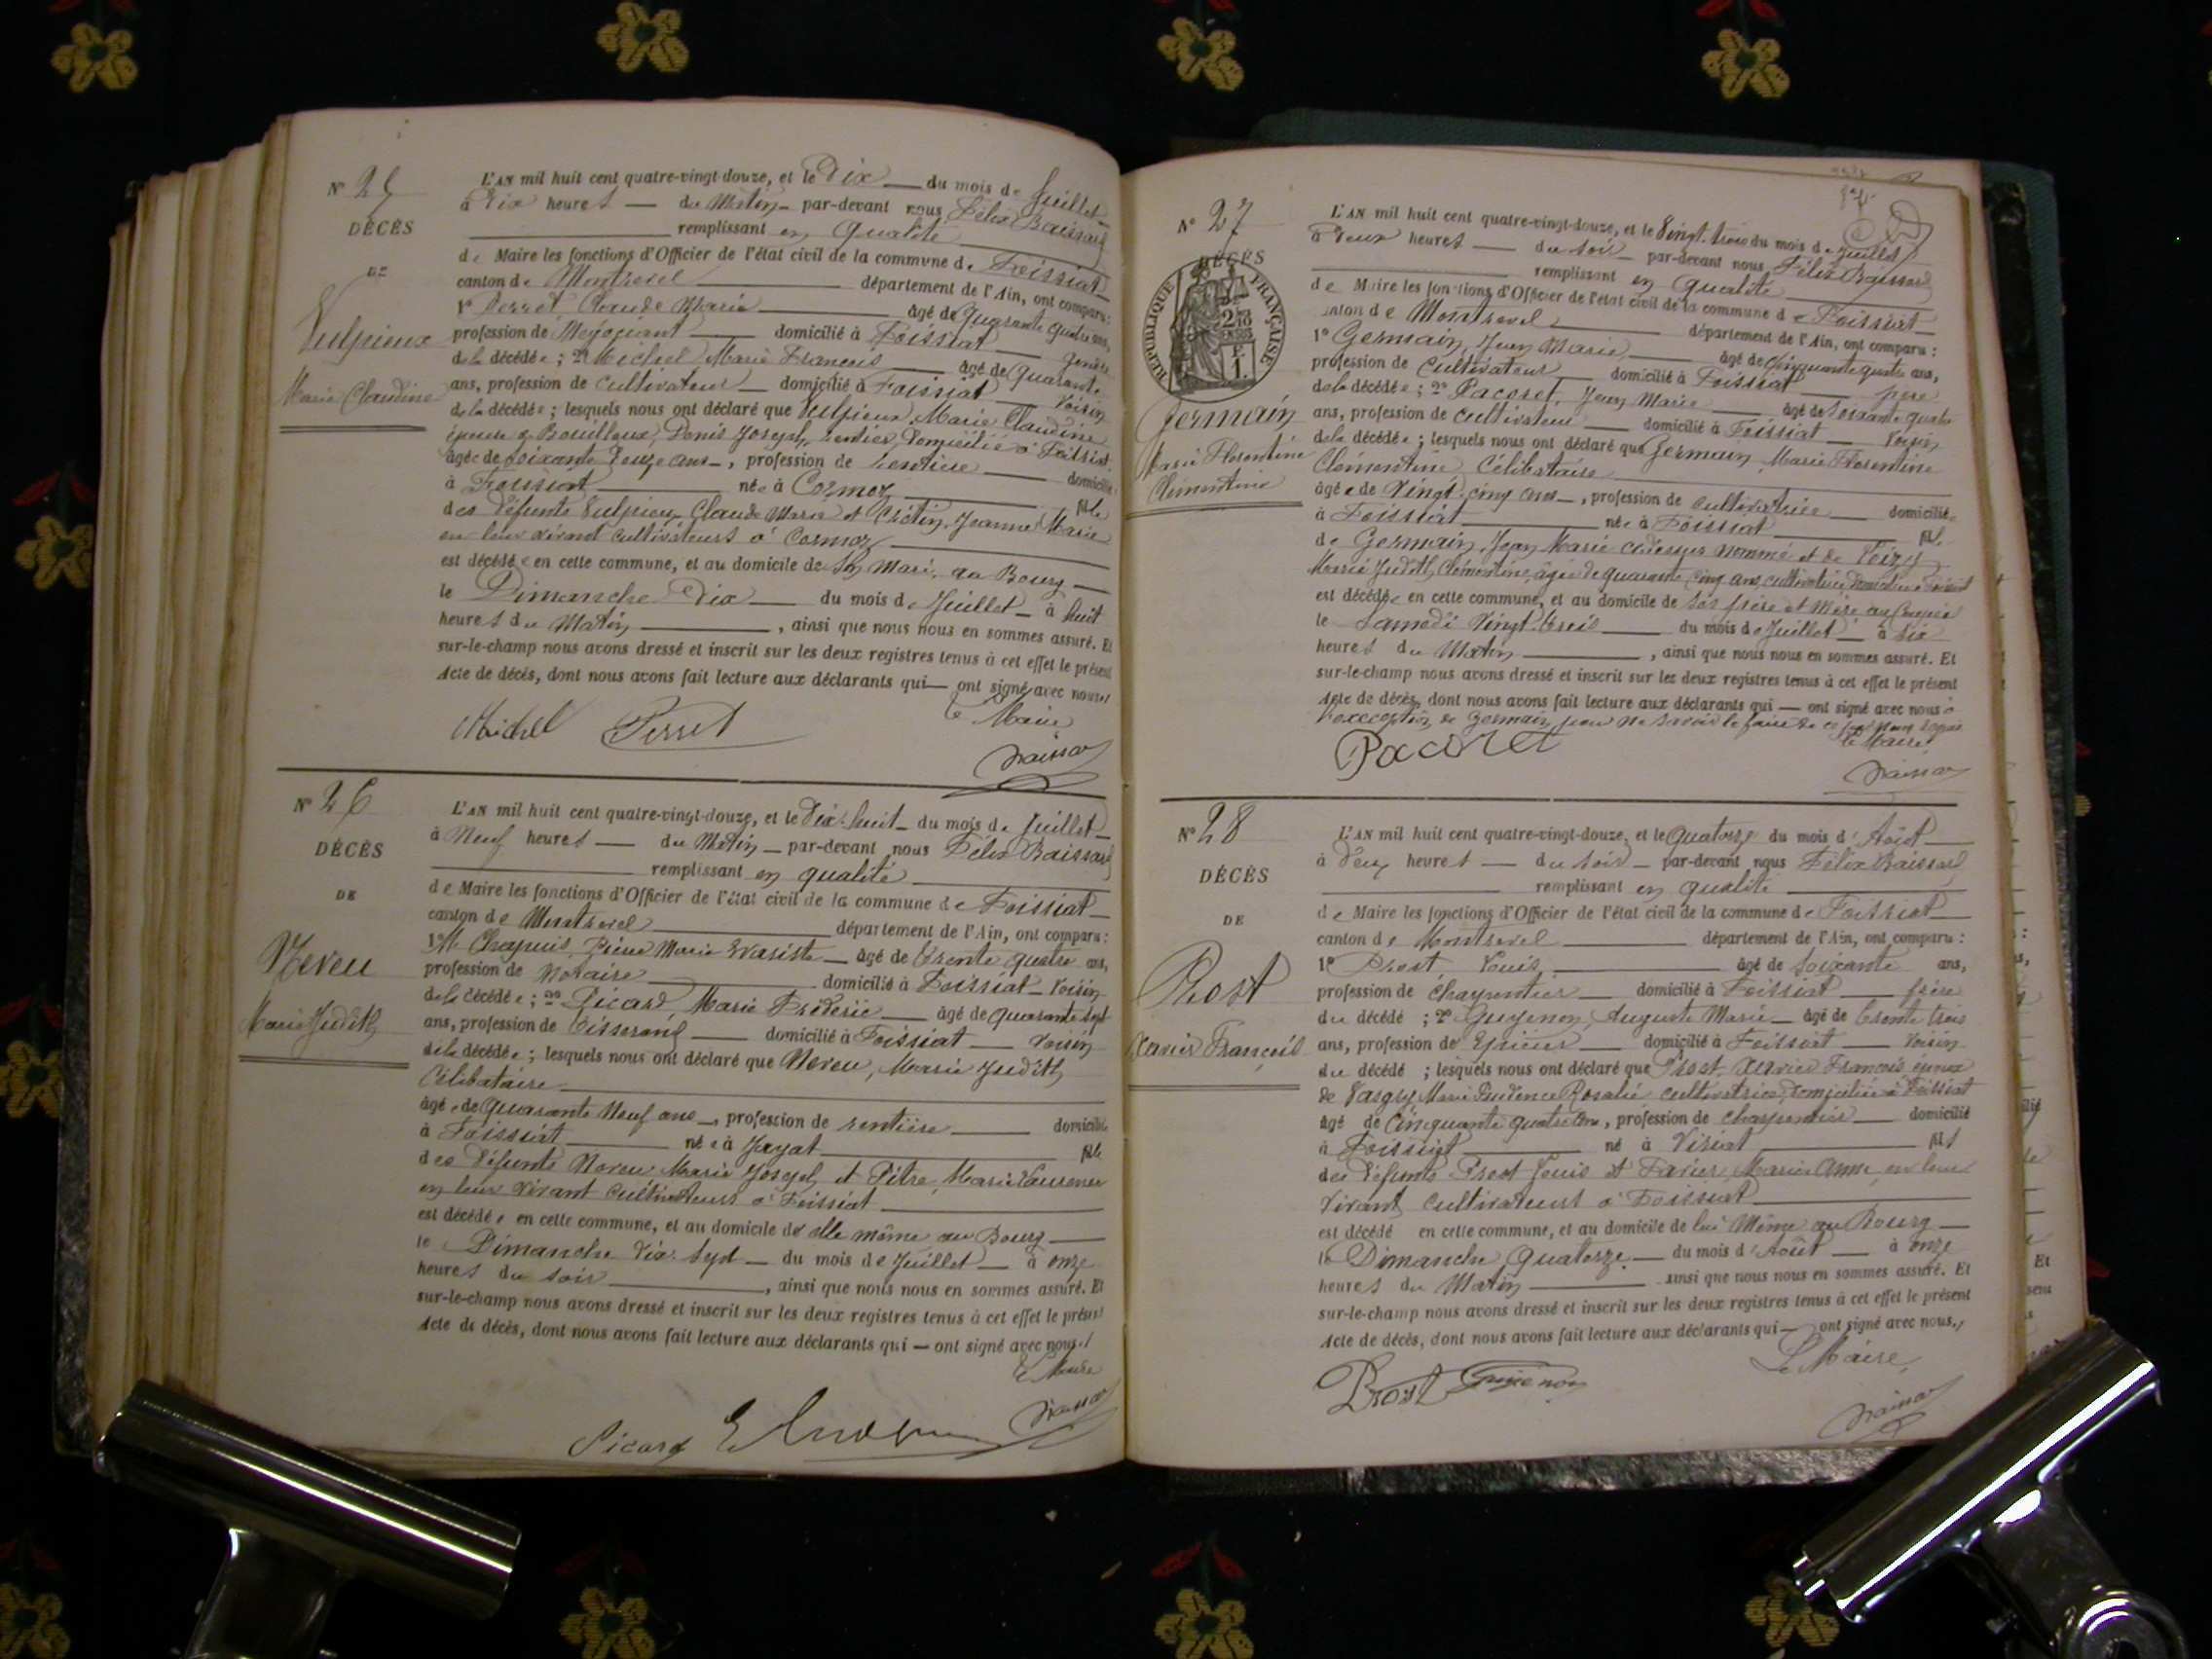 N° 25
DÉCÈS
DE
Vulpieux
Marie Claudine
L'AN mil huit cent quatre-vingt-douze, et le Dix du mois de Juillet
à Dix heures du Matin par-devant nous Félix Baissard
remplissant en qualité
de Maire les fonctions d'Officier de l'état civil de la commune de Foissiat
canton de Montrevel département de l'Ain, ont comparu:
1° Perret Claude Marie âgé de quarante quatre ans,
profession de Négociant domicilié à Foissiat gendre
de la décédée; 2° Michel Marie François âgé de quarante
ans, profession de cultivateur domicilié à Foissiat voisin
de la décédée; lesquels nous ont déclaré que Vulpieux, Marie Claudine
épouse de Bouilloux, Denis Joseph, rentier domicilié à Foissiat
âgée de soixante douze ans, profession de rentière domiciliée
à Foissiat née à Cormoz fille
des défunts Vulpieux Claude Marie et Crétin, Jeanne Marie
en leur vivant cultivateurs à Cormoz
est décédée en cette commune, et au domicile de son Mari, au Bourg
le Dimanche Dix du mois de Juillet à huit
heures du Matin, ainsi que nous nous en sommes assuré. Et
sur-le-champ nous avons dressé et inscrit sur les deux registres tenus à cet effet le présent
Acte de décès, dont nous avons fait lecture aux déclarants qui ont signé avec nous
Le Maire
Michel Perret
N° 26
DÉCÈS
DE
Neveu
Marie Judith
L'AN mil huit cent quatre-vingt-douze, et le Dix huit du mois de Juillet
à Neuf heures du Matin par-devant nous Félix Baissard
remplissant en qualité
de Maire les fonctions d'Officier de l'état civil de la commune de Foissiat
canton de Montrevel département de l'Ain, ont comparu:
1° M. Chapuis, Pierre Marie Evariste âgé de trente quatre ans,
profession de Notaire domicilié à Foissiat voisin
de la décédée; 2° Picard, Marie Frédéric âgé de quarante sept
ans, profession de tisserand domicilié à Foissiat voisin
de la décédée; lesquels nous ont déclaré que Neveu, Marie Judith
Célibataire
âgée de quarante Neuf ans, profession de rentière domiciliée
à Foissiat née à Jayat fille
des défunts Neveu Marie Joseph et Pitre, Marie Laurence
en leur vivant cultivateurs à Foissiat
est décédée en cette commune, et au domicile de elle même au Bourg
le Dimanche dix sept du mois de Juillet à onze
heures du soir, ainsi que nous nous en sommes assuré. Et
sur-le-champ nous avons dressé et inscrit sur les deux registres tenus à cet effet le présent
Acte de décès, dont nous avons fait lecture aux déclarants qui ont signé avec nous./
Le Maire
Picard
N° 27
DÉCÈS
RÉPUBLIQUE FRANÇAISE
Germain
Marie Florentine
Clémentine
L'AN mil huit cent quatre-vingt-douze, et le Vingt trois du mois de Juillet
à Deux heures du soir par-devant nous Félix Baissard
remplissant en qualité
de Maire les fonctions d'Officier de l'état civil de la commune de Foissiat
canton de Montrevel département de l'Ain, ont comparu:
1° Germain Jean Marie âgé de cinquante quatre ans,
profession de cultivateur domicilié à Foissiat père
de la décédée; 2° Pacoret, Jean Marie âgé de soixante quatre
ans, profession de cultivateur domicilié à Foissiat voisin
de la décédée; lesquels nous ont déclaré que Germain Marie Florentine
Clémentine Célibataire
âgée de vingt cinq ans, profession de cultivatrice domiciliée
à Foissiat née à Foissiat fille
de Germain, Jean Marie ci dessus nommé et de
Marie Judith Clémentine, âgée de quarante cinq ans, cultivatrice domiciliée à Foissiat
est décédée en cette commune, et au domicile de ses père et mère au
le Samedi Vingt trois du mois de Juillet à six
heures du Matin, ainsi que nous nous en sommes assuré. Et
sur-le-champ nous avons dressé et inscrit sur les deux registres tenus à cet effet le présent
Acte de décès, dont nous avons fait lecture aux déclarants qui ont signé avec nous à
l'exception de Germain, pour ne savoir le faire de ce
Le Maire
Pacoret
N° 28
DÉCÈS
DE
Prost
Xavier François
L'AN mil huit cent quatre-vingt-douze, et le quatorze du mois d'Août
à deux heures du soir par-devant nous Félix Baissard
remplissant en qualité
de Maire les fonctions d'Officier de l'état civil de la commune de Foissiat
canton de Montrevel département de l'Ain, ont comparu:
1° Prost, Louis âgé de soixante ans,
profession de charpentier domicilié à Foissiat frère
du décédé; 2° Guyenon, Auguste Marie âgé de trente trois
ans, profession de Epicier domicilié à Foissiat voisin
du décédé; lesquels nous ont déclaré que Prost, Xavier François époux
de Marie Prudence Rosalie cultivatrice, domiciliée à Foissiat
âgé de cinquante quatre ans, profession de charpentier domicilié
à Foissiat né à Viriat fils
des défunts Prost Louis et Favier, Marie Anne, en leur
vivant cultivateurs à Foissiat
est décédé en cette commune, et au domicile de lui même au Bourg
le Dimanche quatorze du mois d'Août à onze
heures du Matin ainsi que nous nous en sommes assuré. Et
sur-le-champ nous avons dressé et inscrit sur les deux registres tenus à cet effet le présent
Acte de décès, dont nous avons fait lecture aux déclarants qui ont signé avec nous./
Le Maire,
Prost Guyenon